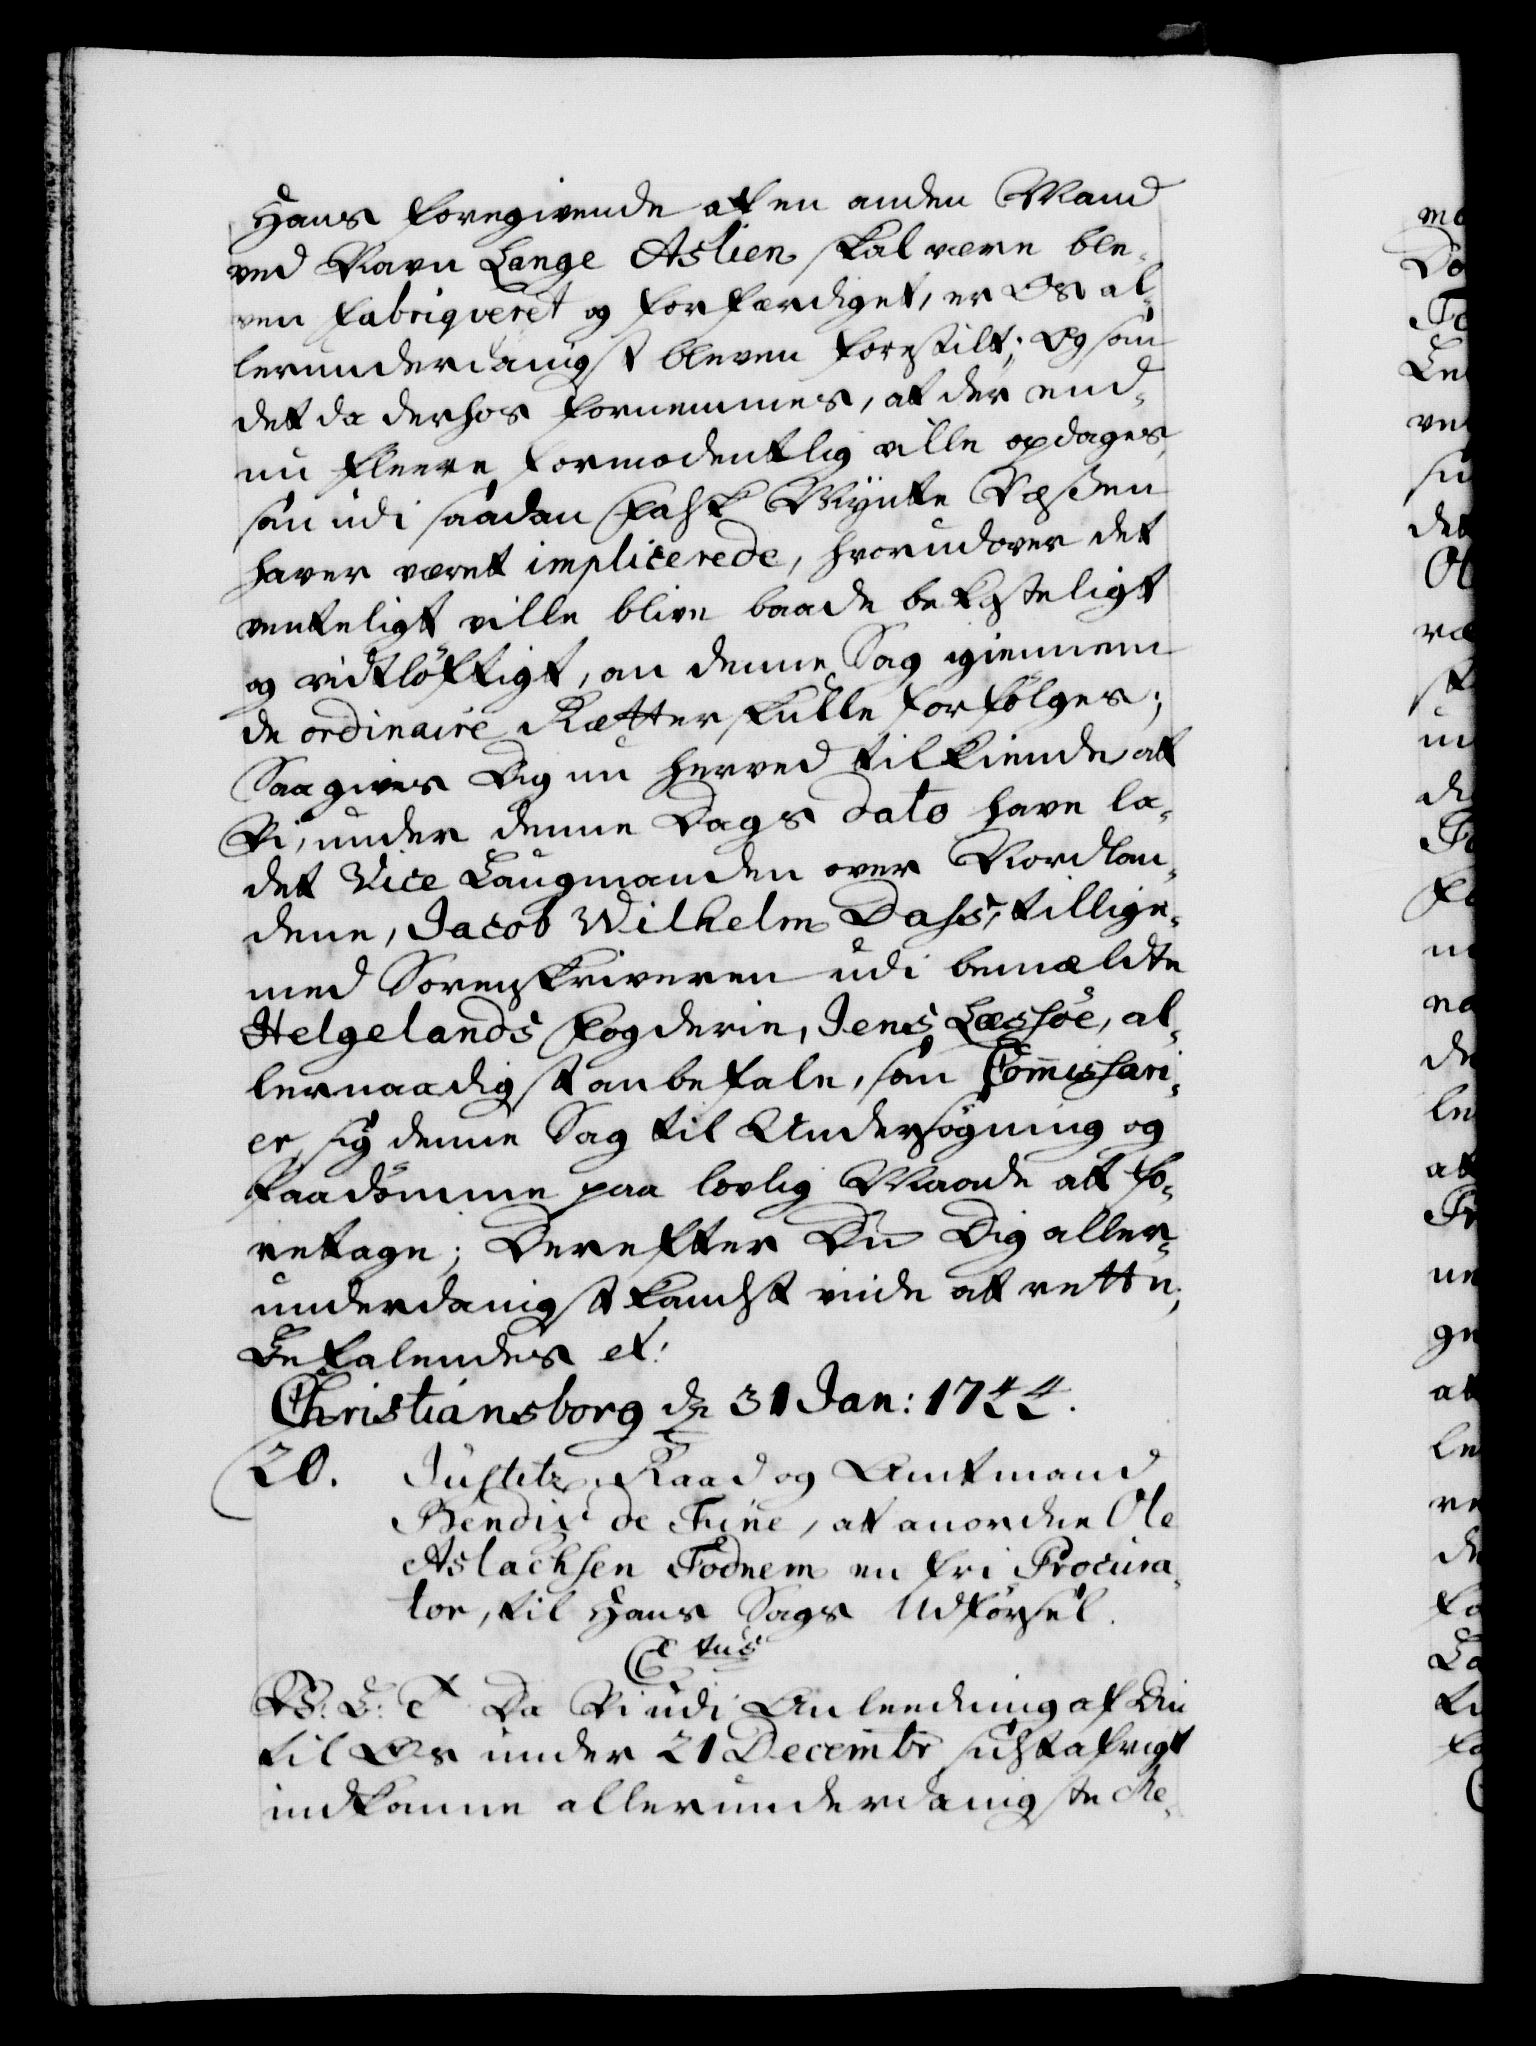 Hans foregivende af en anden Mand
ved Navn Lange Aslien skal være ble¬
ven fabriqveret og forfærdiget, er Os al¬
lerunderdanigst bleven forestilt; Og som
det da derhos fornemmes, at der end¬
nu fleere formodentlig ville opdages,
som udi saadan falsk Mynte Væssen
haver været implicerede, hvorudover det
venteligt ville blive baade bekosteligt
og vidtløftigt, om denne Sag igiennem
de ordinaire Rætter skulle forfølges;
Saa gives Dig nu herved tilkiende, at
Vi, under denne Dags Dato have la¬
det Vice Laugmanden over Nordlan¬
dene, Jacob Wilhelm Dass, tillige¬
med Sorenskriveren udi bemældte
Helgelands Fogderie, Jens Læssøe, al¬
lernaadigst anbefale, som Commissari¬
er, sig denne Sag til Undersøgning og
Paadømme paa lovlig Maade at fo¬
retage; Derefter Du Dig aller¬
underdanigst kandst vide at rette,
Befalendes etc:
Christiansborg d: 31 Jan: 1744.
20. Justitz-Raad og Amtmand
Bendix de Fine, at anordne Ole
Aslachsen Fodnem en fri Procura¬
tor, til Hans Sags Udførsel.
C 6tus
V: G: T. Da Vi udi Anleedning af Din
til Os under 21 Decembr sidst afvigt
indkomne allerunderdanigste Re¬